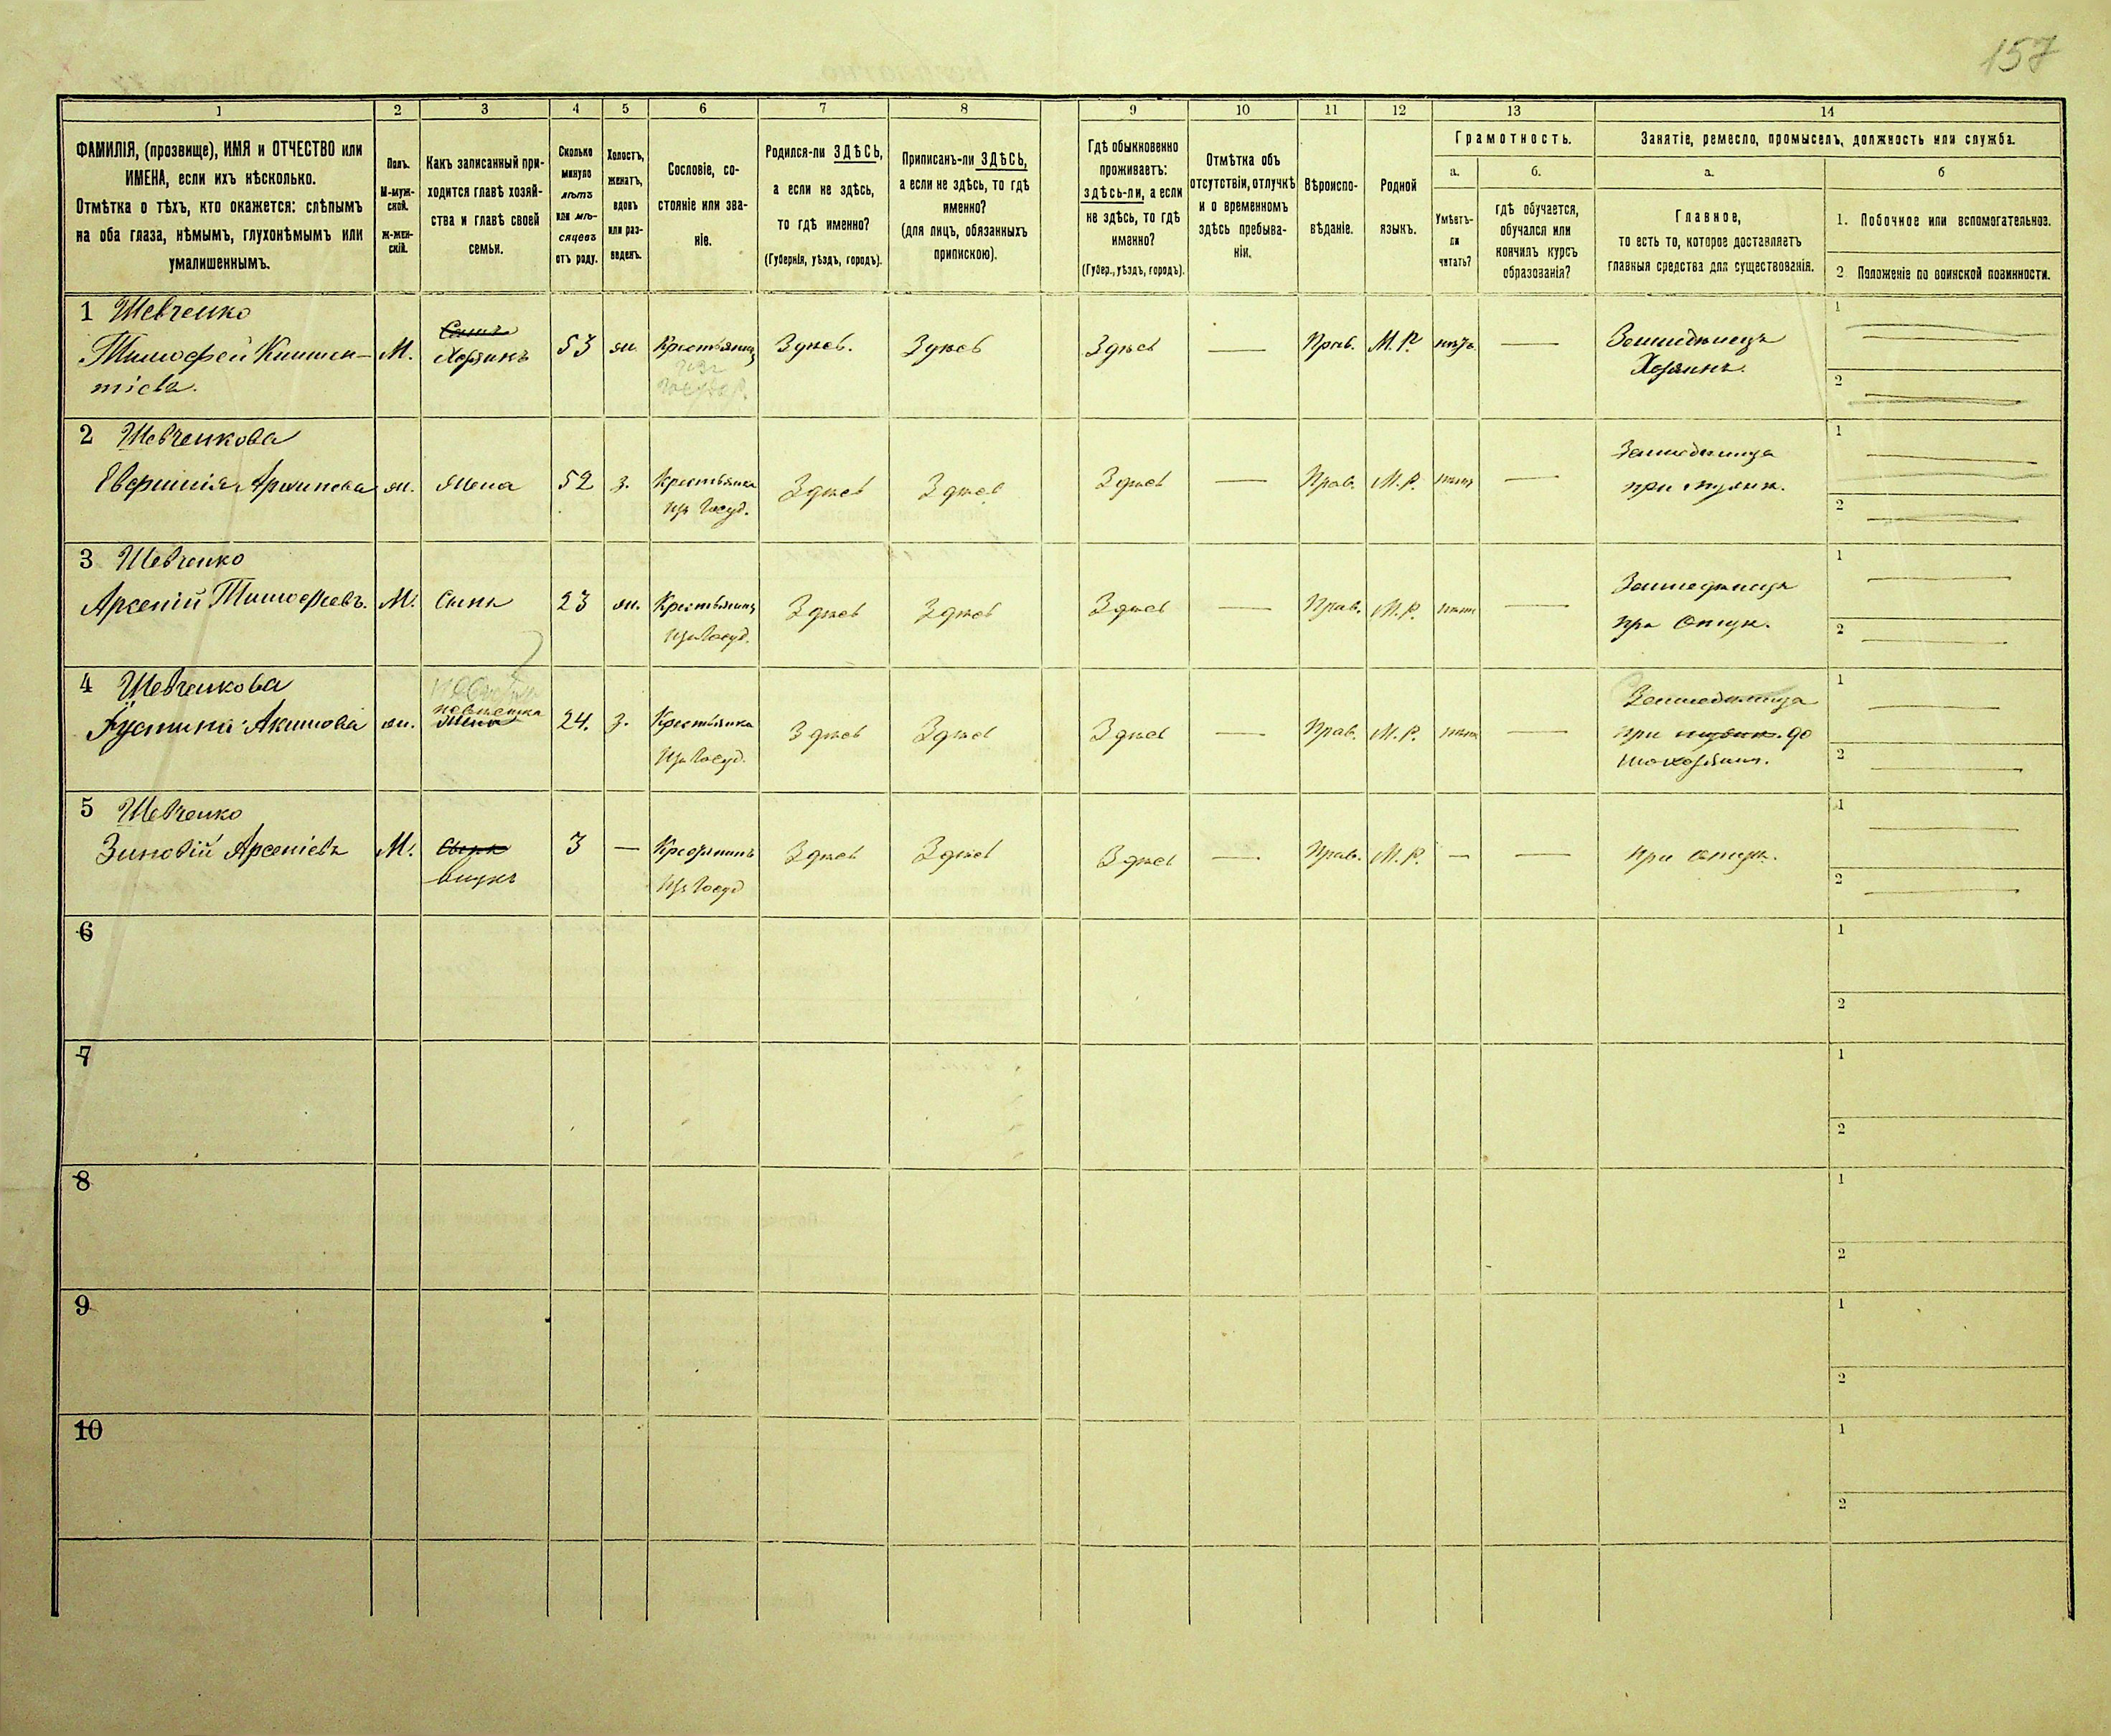 157
1
2
3
4
5
6
7
8
9
10
11
12
13
14
ФАМИЛІЯ, (прозвище), ИМЯ и ОТЧЕСТВО или
ИМЕНА, если ихъ нѣсколько.
Отмѣтка о тѣхъ, кто окажется: слѣпымъ
на оба глаза, нѣмымъ, глухонѣмымъ или
умалишеннымъ.
Полъ.
М-муж-
ской.
ж-жен-
скій.
Какъ записанный при-
ходится главѣ хозяй-
ства и главѣ своей
семьи.
Сколько
минуло
лѣтъ
или мѣ-
сяцевъ
отъ роду.
Холостъ,
женатъ,
вдовъ
или раз-
веденъ.
Сословіе, со-
стояніе или зва-
ніе.
Родился-ли ЗДѢСЬ,
а если не здѣсь,
то гдѣ именно?
(Губернія, уѣздъ, городъ).
Приписанъ-ли ЗДѢСЬ,
а если не здѣсь, то гдѣ
именно?
(для лицъ, обязанныхъ
припискою).
Гдѣ обыкновенно
проживаетъ:
здѣсь-ли, а если
не здѣсь, то гдѣ
именно?
(Губер., уѣздъ, городъ).
Отмѣтка объ
отсутствіи, отлучкѣ
и о временномъ
здѣсь пребыва-
ніи.
Вѣроиспо-
вѣданіе.
Родной
языкъ.
Грамотность.
а.
Умѣетъ-
ли
читать?
б.
гдѣ обучается,
обучался или
кончилъ курсъ
образованія?
Занятіе, ремесло, промыселъ, должность или служба.
а.
Главное,
то есть то, которое доставляетъ
главныя средства для существованія.
б
1. Побочное или вспомогательное.
2 Положеніе по воинской повинности.
1 Шевченко
Тимофей Климен-
тіевъ.
М.
Хозяинъ
53
ж.
Крестьянинъ
изъ
Государ.
Здѣсь.
Здѣсь
Здѣсь
—
Прав.
М. Р.
нѣтъ
—
Земледѣлецъ
Хозяинъ.
1
2
2 Шевченкова
Архипова
ж.
Жена
52
з.
Крестьянка
изъ Госуд.
Здѣсь
Здѣсь
Здѣсь
—
Прав.
М. Р.
нѣтъ
—
при мужѣ.
1
2
3 Шевченко
Арсеній Тимофеевъ.
М.
Сынъ
23
ж.
Крестьянинъ
изъ Госуд.
Здѣсь
Здѣсь
Здѣсь
—
Прав.
М. Р.
нѣтъ
—
Земледѣлецъ
при отцѣ.
1
2
4 Шевченкова
Іустина Акимова
ж.
невѣстка
жена
24.
з.
Крестьянка
изъ Госуд.
Здѣсь
Здѣсь
Здѣсь
—
Прав.
М. Р.
нѣтъ
—
при мужѣ. до
мохозяин.
1
2
5 Шевченко
Зиновій Арсеніевъ
М.
Сынъ
внукъ
3
—
изъ Госуд
Здѣсь
Здѣсь
Здѣсь
—
Прав.
М. Р.
—
—
при отцѣ.
1
2
6
1
2
7
1
2
8
1
2
9
1
2
10
1
2